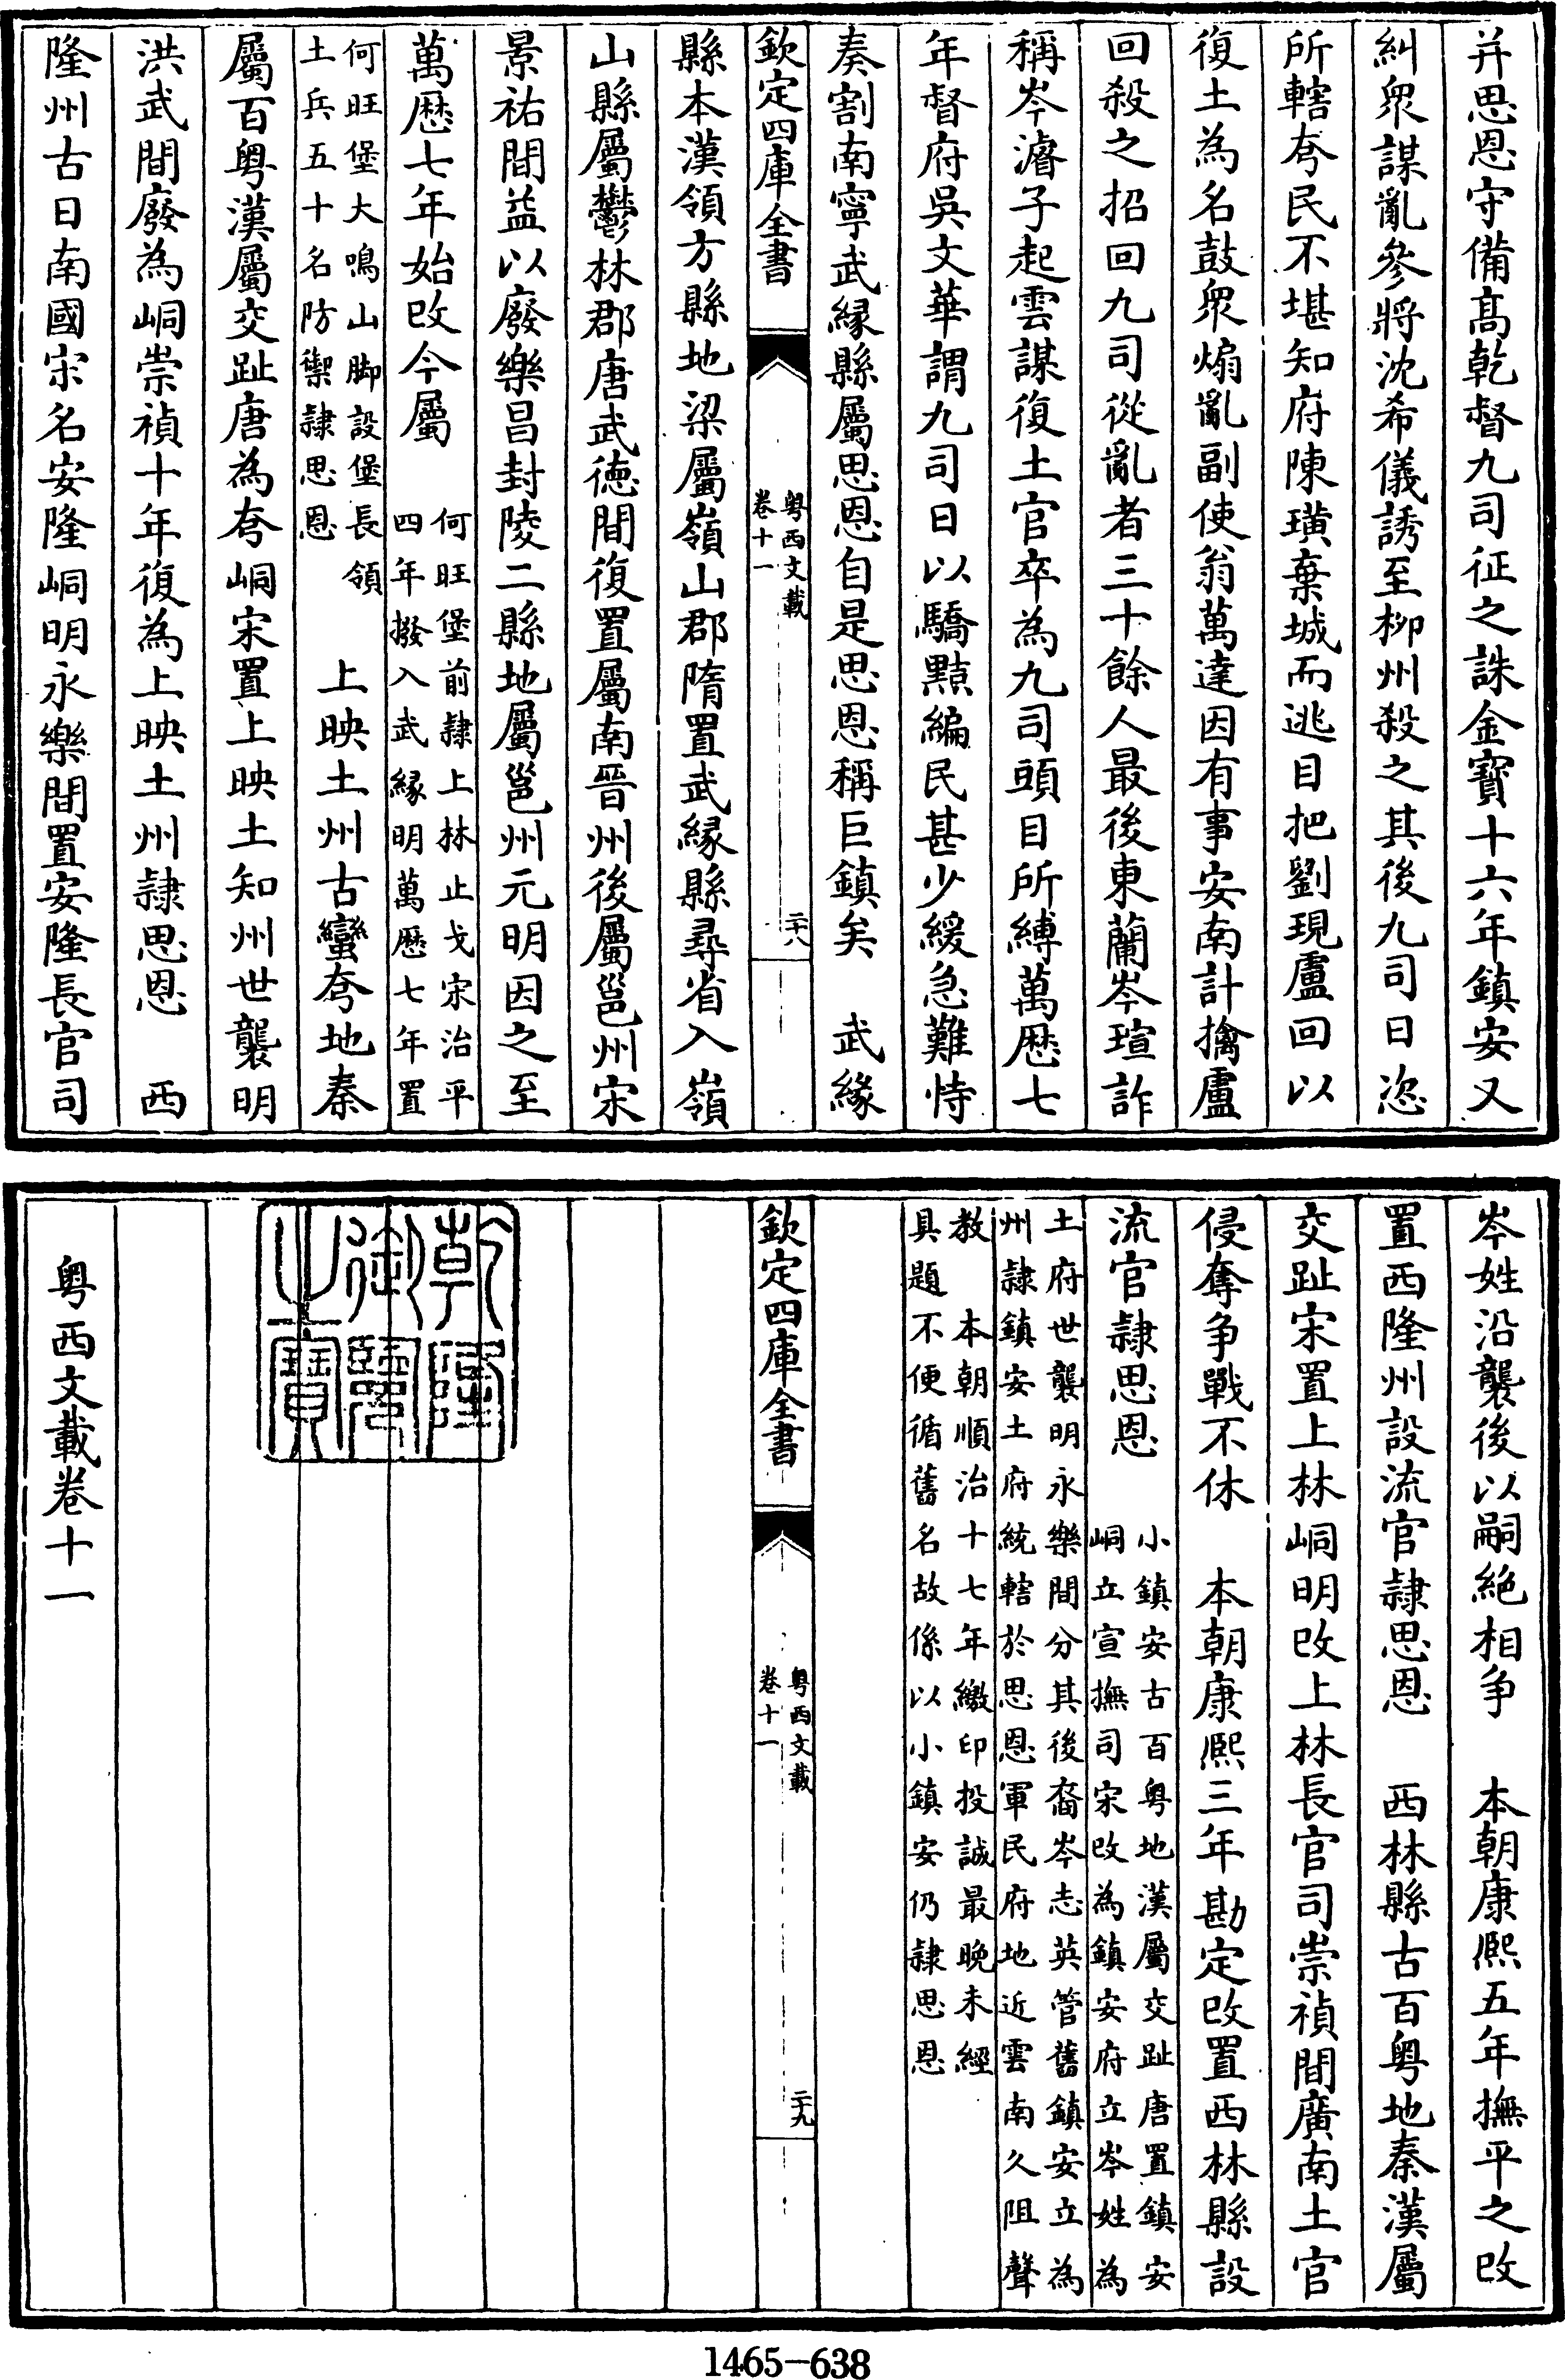 并思恩守備高乾督九司征之誅金寳十六年鎮安又
糾衆謀亂參將沈希儀誘至柳州殺之其後九司日恣
所轄夸民不堪知府陳璜棄城而逃目把劉現盧回以
復土為名鼓衆煽亂副使翁萬達因有事安南計擒盧
回殺之招回九司從亂者三十餘人最後東蘭岑瑄詐
稱岑濬子起雲謀復土官卒為九司頭目所縛萬歴七
年督府吳文華謂九司日以驕黠編民甚少緩急難恃
奏割南寧武縁縣屬思恩自是思恩稱巨鎮矣　武緣
欽定四庫全書
粤西文載
卷十一
二十八
縣本漢領方縣地梁屬嶺山郡隋置武縁縣尋省入嶺
山縣屬鬱林郡唐武徳間復置屬南晉州後屬邕州宋
景祐間益以廢樂昌封陵二縣地屬邕州元明因之至
萬歴七年始改今屬
何旺堡前隷上林止戈宋治平
四年撥入武縁明萬歴七年置
何旺堡大鳴山脚設堡長領
土兵五十名防禦隷思恩
上映土州古蠻夸地秦
屬百粤漢屬交趾唐為夸峒宋置上映土知州世襲明
洪武間廢為峒崇禎十年復為上映土州隷思恩　西
隆州古日南國宋名安隆峒明永樂間置安隆長官司
岑姓沿襲後以嗣絶相争　本朝康熙五年撫平之改
置西隆州設流官隷思恩　西林縣古百粤地秦漢屬
交趾宋置上林峒明改上林長官司崇禎間廣南土官
侵奪争戰不休　本朝康熙三年勘定改置西林縣設
流官隷思恩
小鎮安古百粤地漢屬交趾唐置鎮安
峒立宣撫司宋改為鎮安府立岑姓為
土府世襲明永樂間分其後裔岑志英管舊鎮安立為
州隷鎮安土府統轄於思恩軍民府地近雲南久阻聲
教　本朝順治十七年繳印投誠最晚未經
具題不便循舊名故係以小鎮安仍隷思恩
欽定四庫全書
粤西文載
卷十一
二十九
乾隆御覽之寳
粤西文載卷十一
1465-638